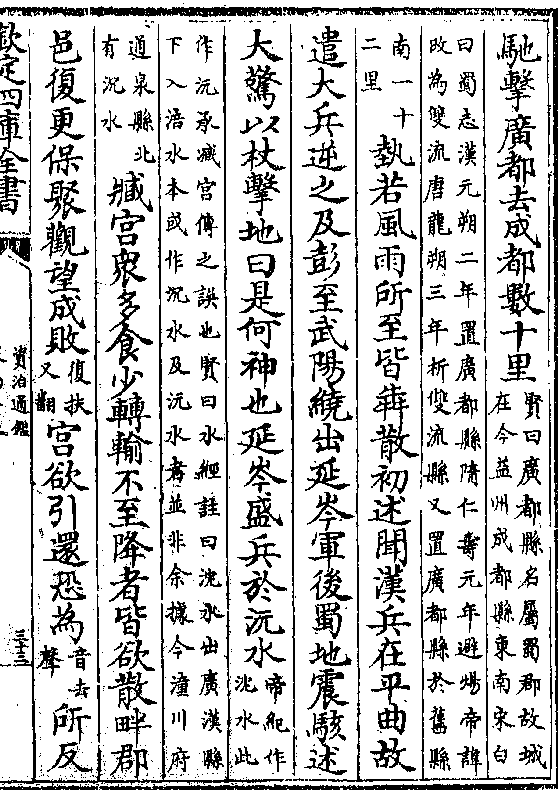 馳擊廣都去成都數十里賢曰廣都縣名屬蜀郡故城在今益州成都縣東南宋白
曰蜀志漢元朔二年置廣都縣隋仁壽元年避煬帝諱
改為雙流唐龍朔三年析雙流縣又置廣都縣於舊縣
南一十二里埶若風雨所至皆犇散初述聞漢兵在平曲故
遣大兵逆之及彭至武陽繞出延岑軍後蜀地震駭述
大驚以杖擊地曰是何神也延岑盛兵於沅水帝紀作沈水此
作沅承臧宫傳之誤也賢曰水經註曰沈水出廣漢縣
下入涪水本或作沉水及沅水者並非余據今潼川府
通泉縣北有沉水臧宫衆多食少轉輸不至降者皆欲散畔郡
邑復更保聚觀望成敗復扶又翻宫欲引還恐為音去聲所反
欽定四庫全書
資治通鑑
三十三